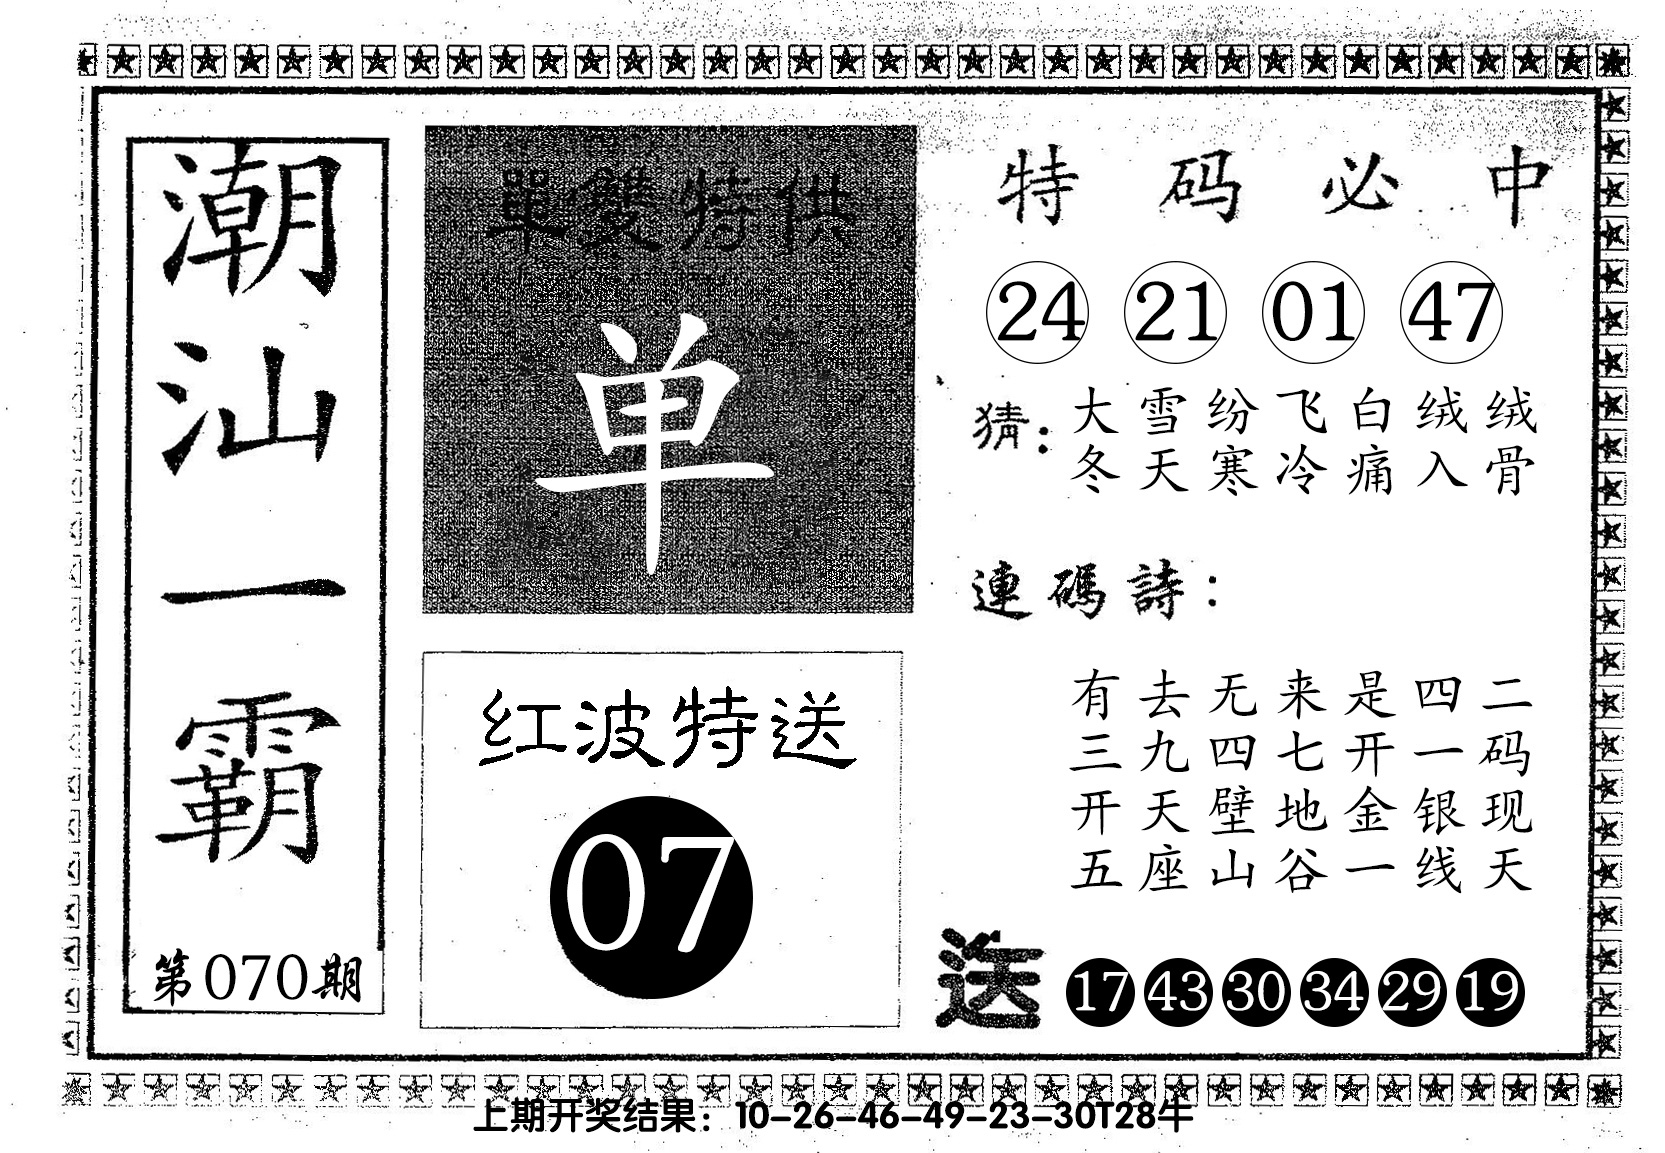 潮汕一霸
第070期
單雙特供
单
红波特送
07
特码必中
24 21 01 47
猜：
大雪纷飞白绒绒
冬天寒冷痛入骨
連碼詩：
有去无来是四二
三九四七开一码
开天壁地金银现
五座山谷一线天
送 17 43 30 34 29 19
上期开奖结果：10-26-46-49-23-30T28牛